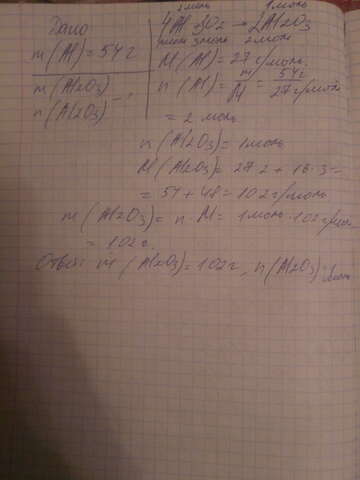 Дано
m(Al)=54г
m(Al2O3)
n(Al2O3) - ?
2моль 1моль
4Al+3O2→2Al2O3
4моль 3моль 2моль
M(Al)=27г/моль.
n(Al)=m/M=54г/27г/моль
=2 моль
n(Al2O3)=1моль
M(Al2O3)=27·2+16·3=
=54+48=102г/моль
m(Al2O3)=n·M=1моль·102г/моль
=102г.
Ответ: m(Al2O3)=102г, n(Al2O3)=1моль